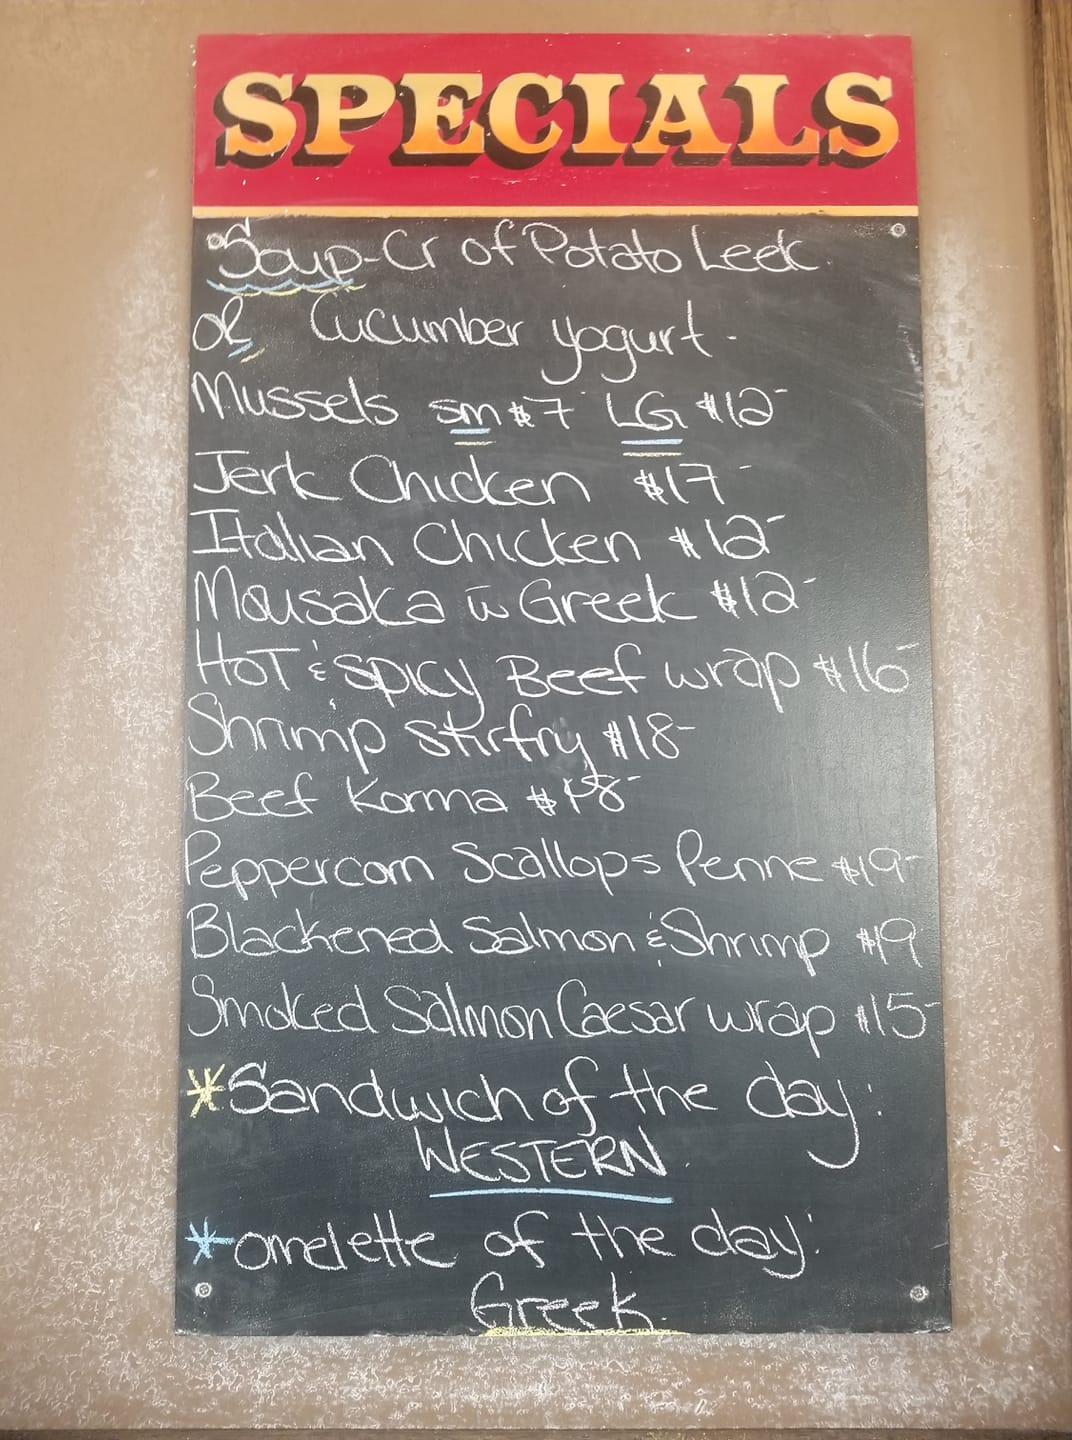 SPECIALS
Soup-Cr of Potato Leek
OR Cucumber yogurt-
Mussels sm $7 LG $12-
Jerk Chicken $17-
Italian Chicken $12-
Mousaka w Greek $12-
HOT & SPICY Beef wrap $16-
Shrimp stirfry $18-
Beef Korma $18-
Peppercorn Scallops Penne $19-
Blackened Salmon & Shrimp $19
Smoked Salmon Caesar wrap $15-
*Sandwich of the day:
WESTERN
*omelette of the day:
Greek